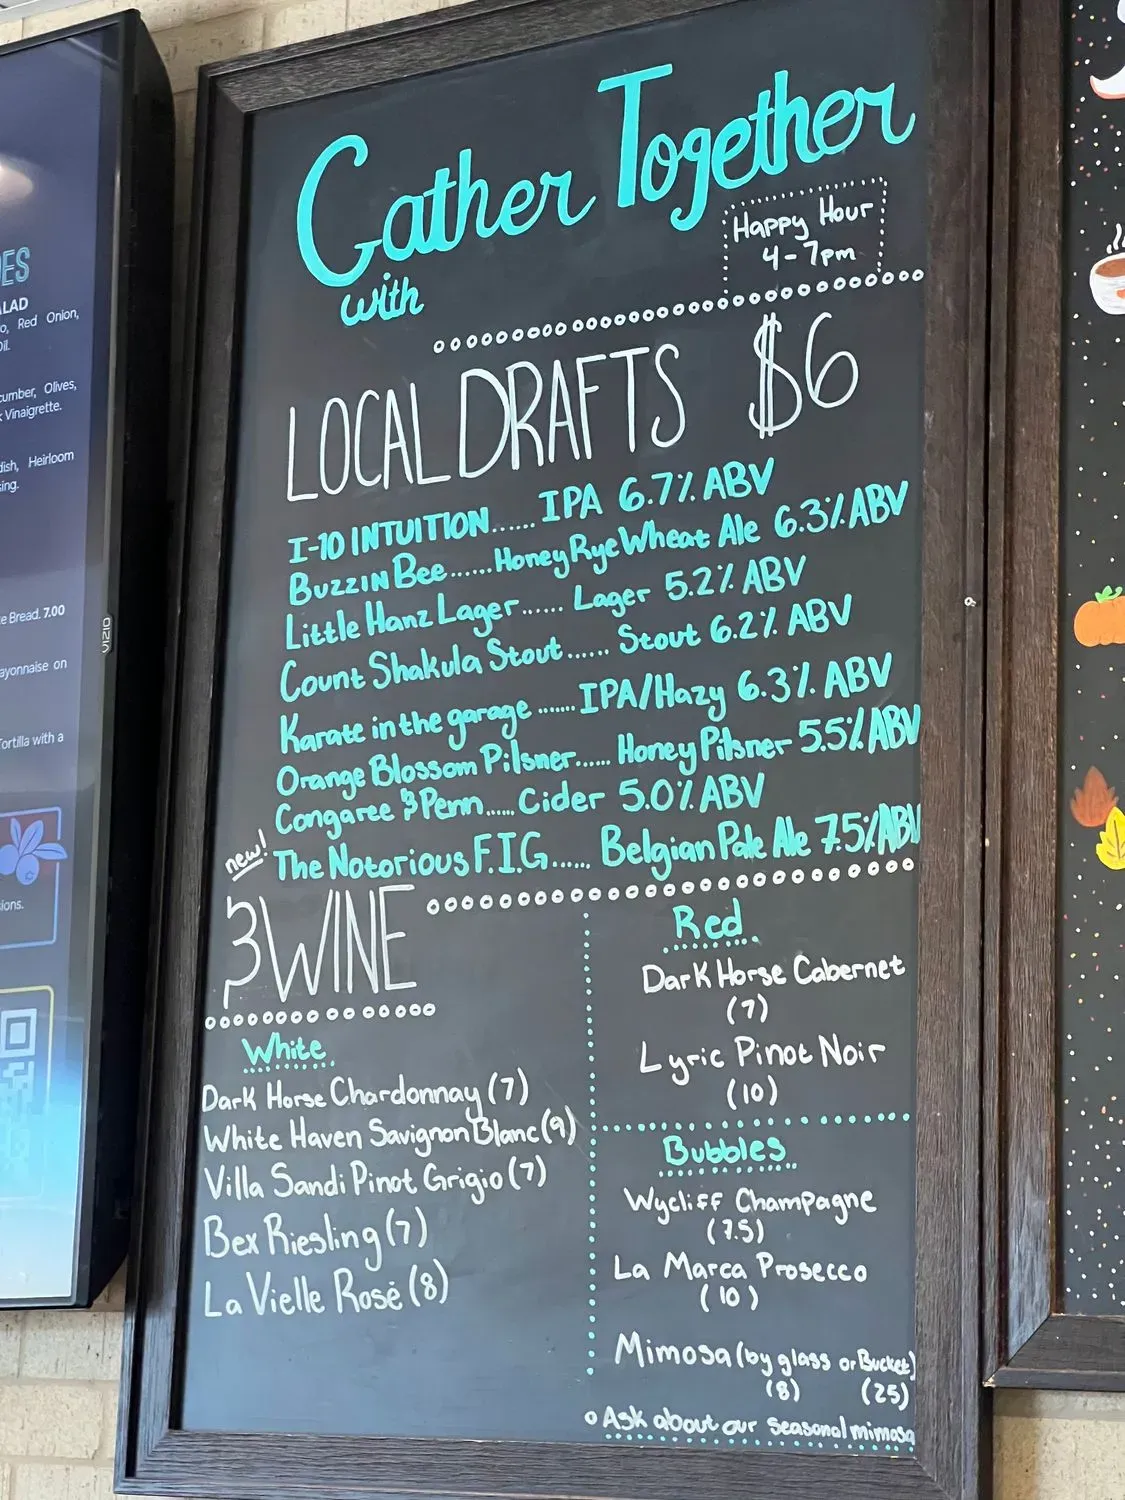 Gather Together
with
Happy Hour
4-7pm
LOCAL DRAFTS $6
I-10 INTUITION...... IPA 6.7% ABV
Buzzin Bee......Honey Rye Wheat Ale 6.3% ABV
Little Hanz Lager...... Lager 5.2% ABV
Count Shakula Stout...... Stout 6.2% ABV
Karate in the garage .......IPA/Hazy 6.3% ABV
Orange Blossom Pilsner...... Honey Pilsner 5.5% ABV
Congaree & Penn......Cider 5.0% ABV
new!
The Notorious F.I.G...... Belgian Pale Ale 7.5% ABV
& WINE
White
Dark Horse Chardonnay (7)
White Haven Savignon Blanc (9)
Villa Sandi Pinot Grigio (7)
Bex Riesling (7)
La Vielle Rosé (8)
Red
Dark Horse Cabernet
(7)
Lyric Pinot Noir
(10)
Bubbles
Wycliff Champagne
(7.5)
La Marca Prosecco
(10)
Mimosa (by glass or Bucket)
(8) (25)
Ask about our seasonal mimosa
DES
Red Onion,
Olives,
Vinaigrette.
Heirloom
Bread. 7.00
on
Tortilla with a
VIZIO